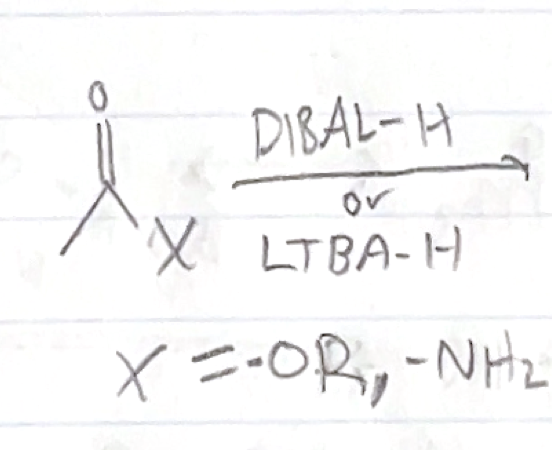 O
DIBAL-H
X
or
LTBA-H
X = -OR, -NH₂